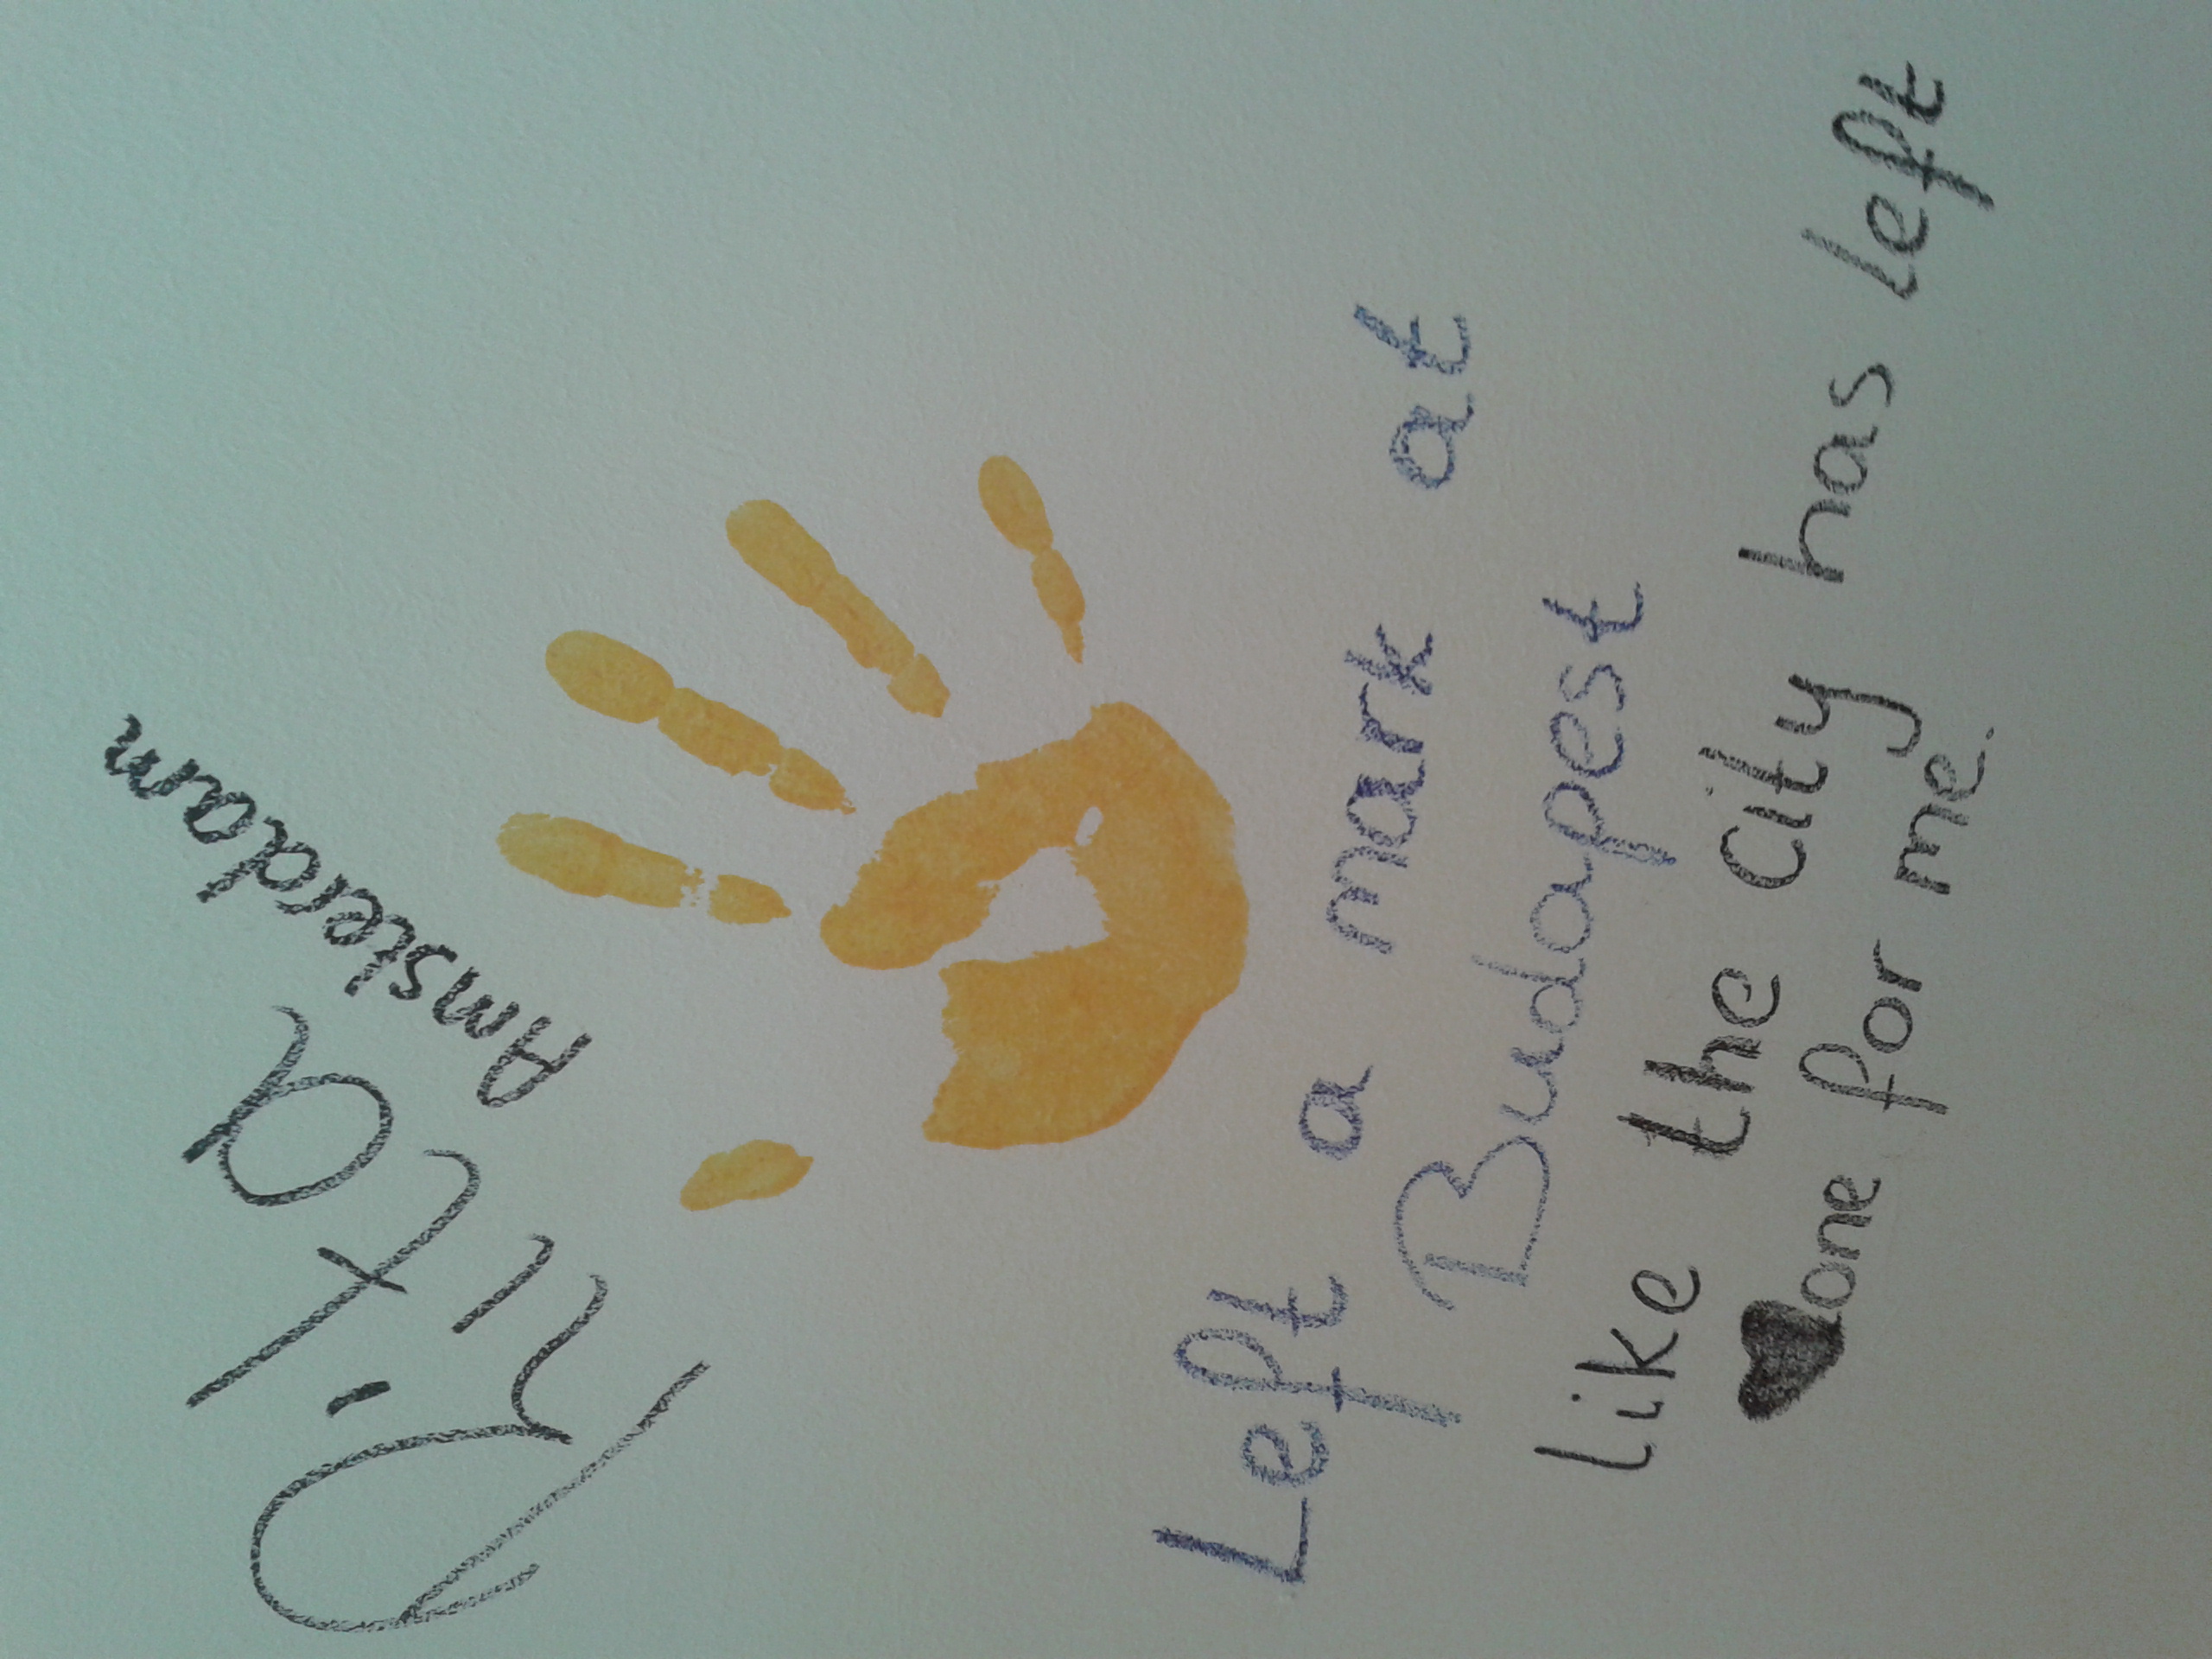 Rita
Amsterdam
Left a mark at
Budapest
like the city has left
one for me.